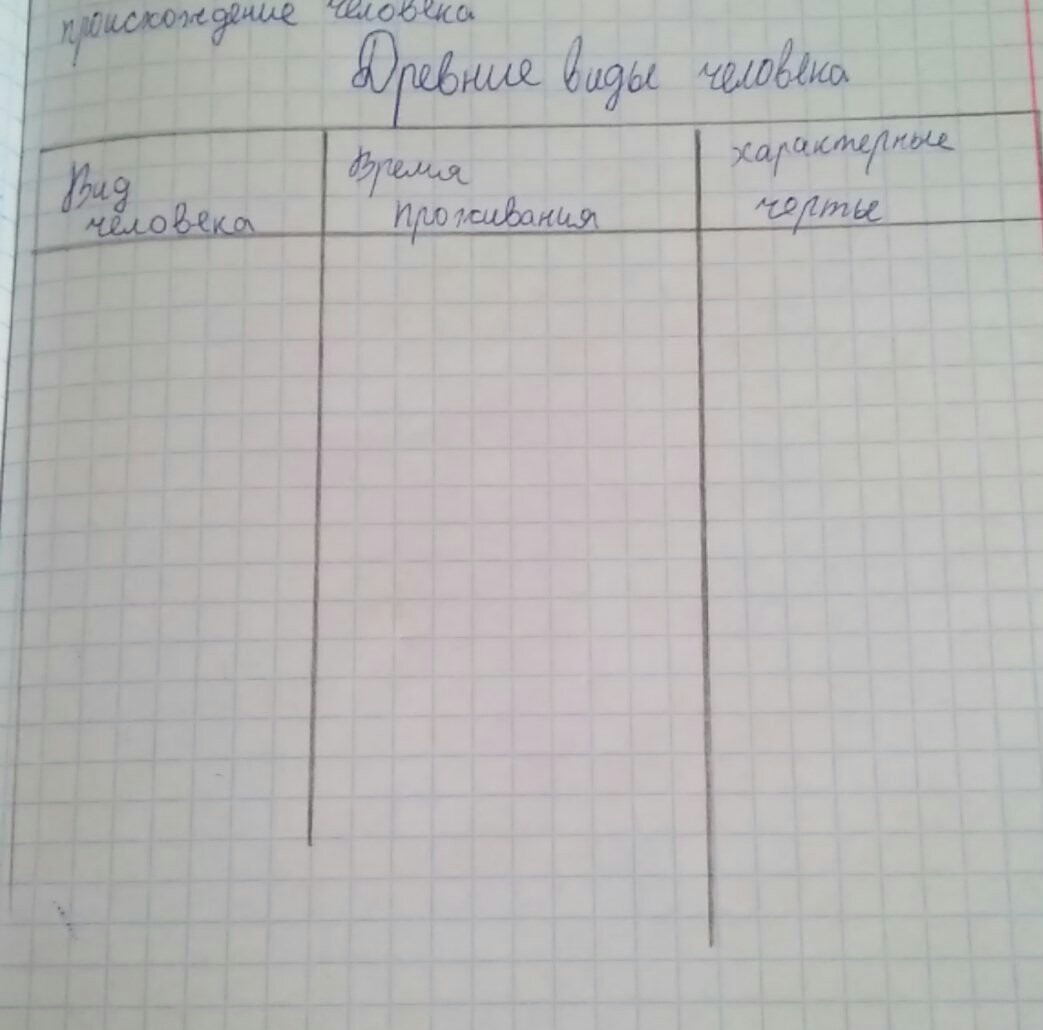 происхождение человека
Древние виды человека
Вид
человека
Время
проживания
характерные
черты